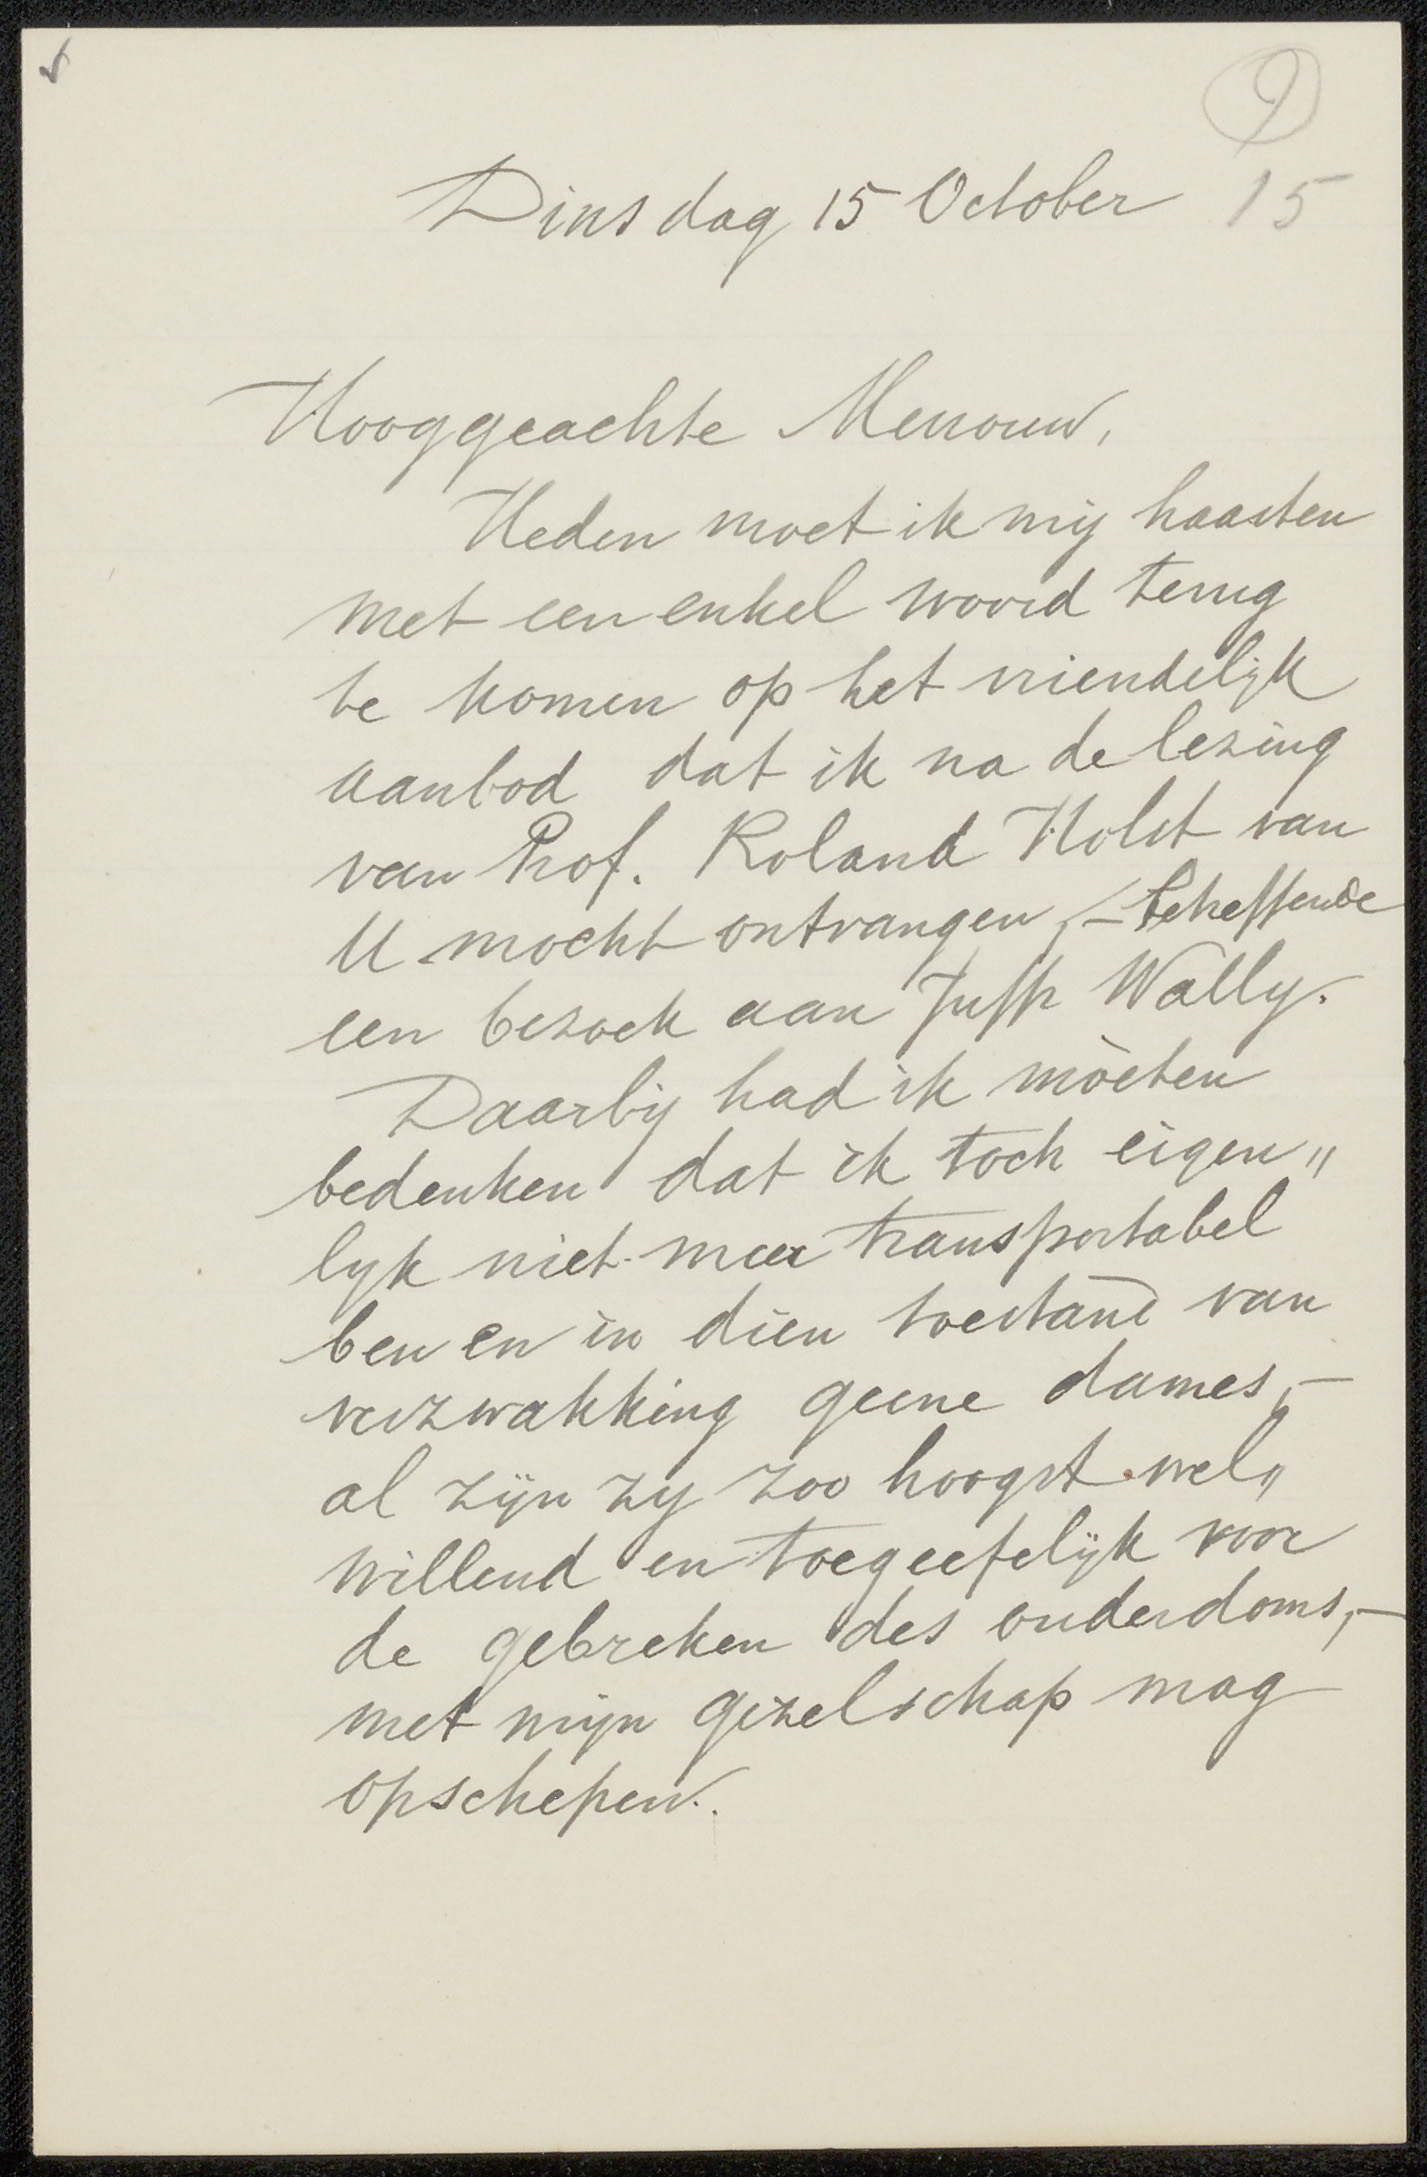 9
Dinsdag 15 October 15
Hooggeachte Mevrouw,
Heden moet ik mij haasten
met een enkel woord terug
te komen op het vriendelijk
aanbod dat ik na de lezing
van Prof. Roland Holst van
U mocht ontvangen, – betreffende
een bezoek aan Juffr Wally.
Daarbij had ik mòeten
bedenken dat ik toch eigen„
lijk niet meer transportabel
ben en in dien toestand van
verzwakking geene dames, –
al zijn zij zoo hoogst wel„
willend en toegeefelijk voor
de gebreken des ouderdoms, –
met mijn gezelschap mag
opschepen.